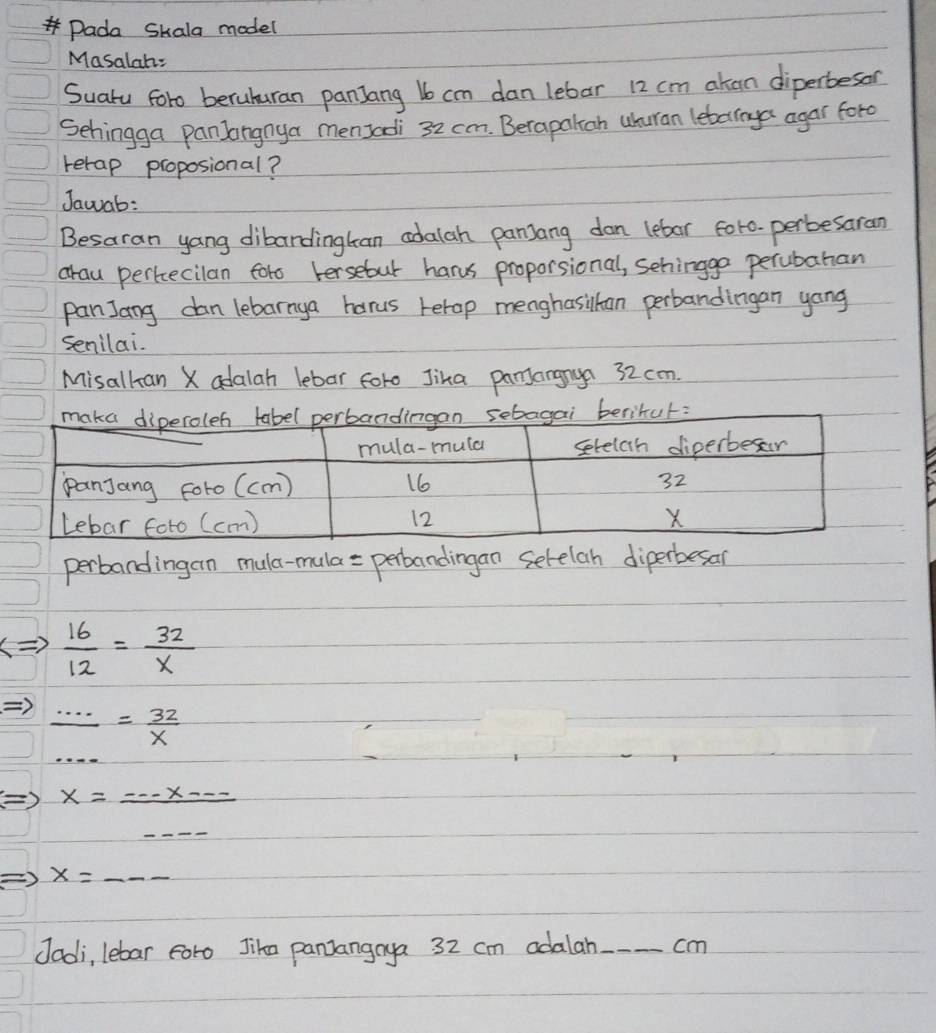 # Pada Skala model
Masalah:
Suatu foto berukuran panjang 16 cm dan lebar 12 cm akan diperbesar
Sehingga panjangnya menjadi 32 cm. Berapakah ukuran lebarnya agar foto
tetap proposional?
Jawab:
Besaran yang dibandingkan adalah panjang dan lebar foto. perbesaran
atau perkecilan foto tersebut harus proporsional, Sehingga perubahan
panjang dan lebarnya harus tetap menghasilkan perbandingan yang
senilai.
Misalkan X adalah lebar foto Jika panjangnya 32 cm.
maka diperoleh tabel perbandingan sebagai berikut:
mula-mula setelah diperbesar
panjang foto (cm) 16 32
Lebar foto (cm) 12 X
perbandingan mula-mula = perbandingan setelah diperbesar
<=> 16/12 = 32/X
=> ..../.... = 32/X
=> X = ---x---/----
=> X = ----
Jadi, lebar foto Jika panjangnya 32 cm adalah ---- cm